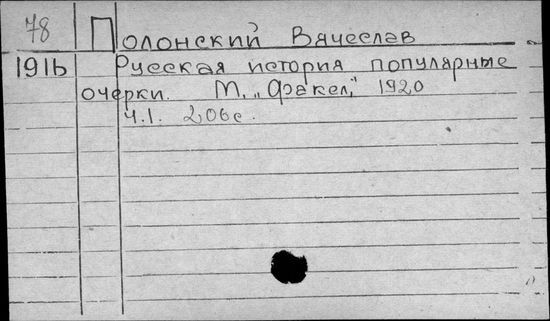 78 Полонский Вячеслав
1916 Русская история популярные
очерки. М. „Факел", 1920
ч.1. 206с.